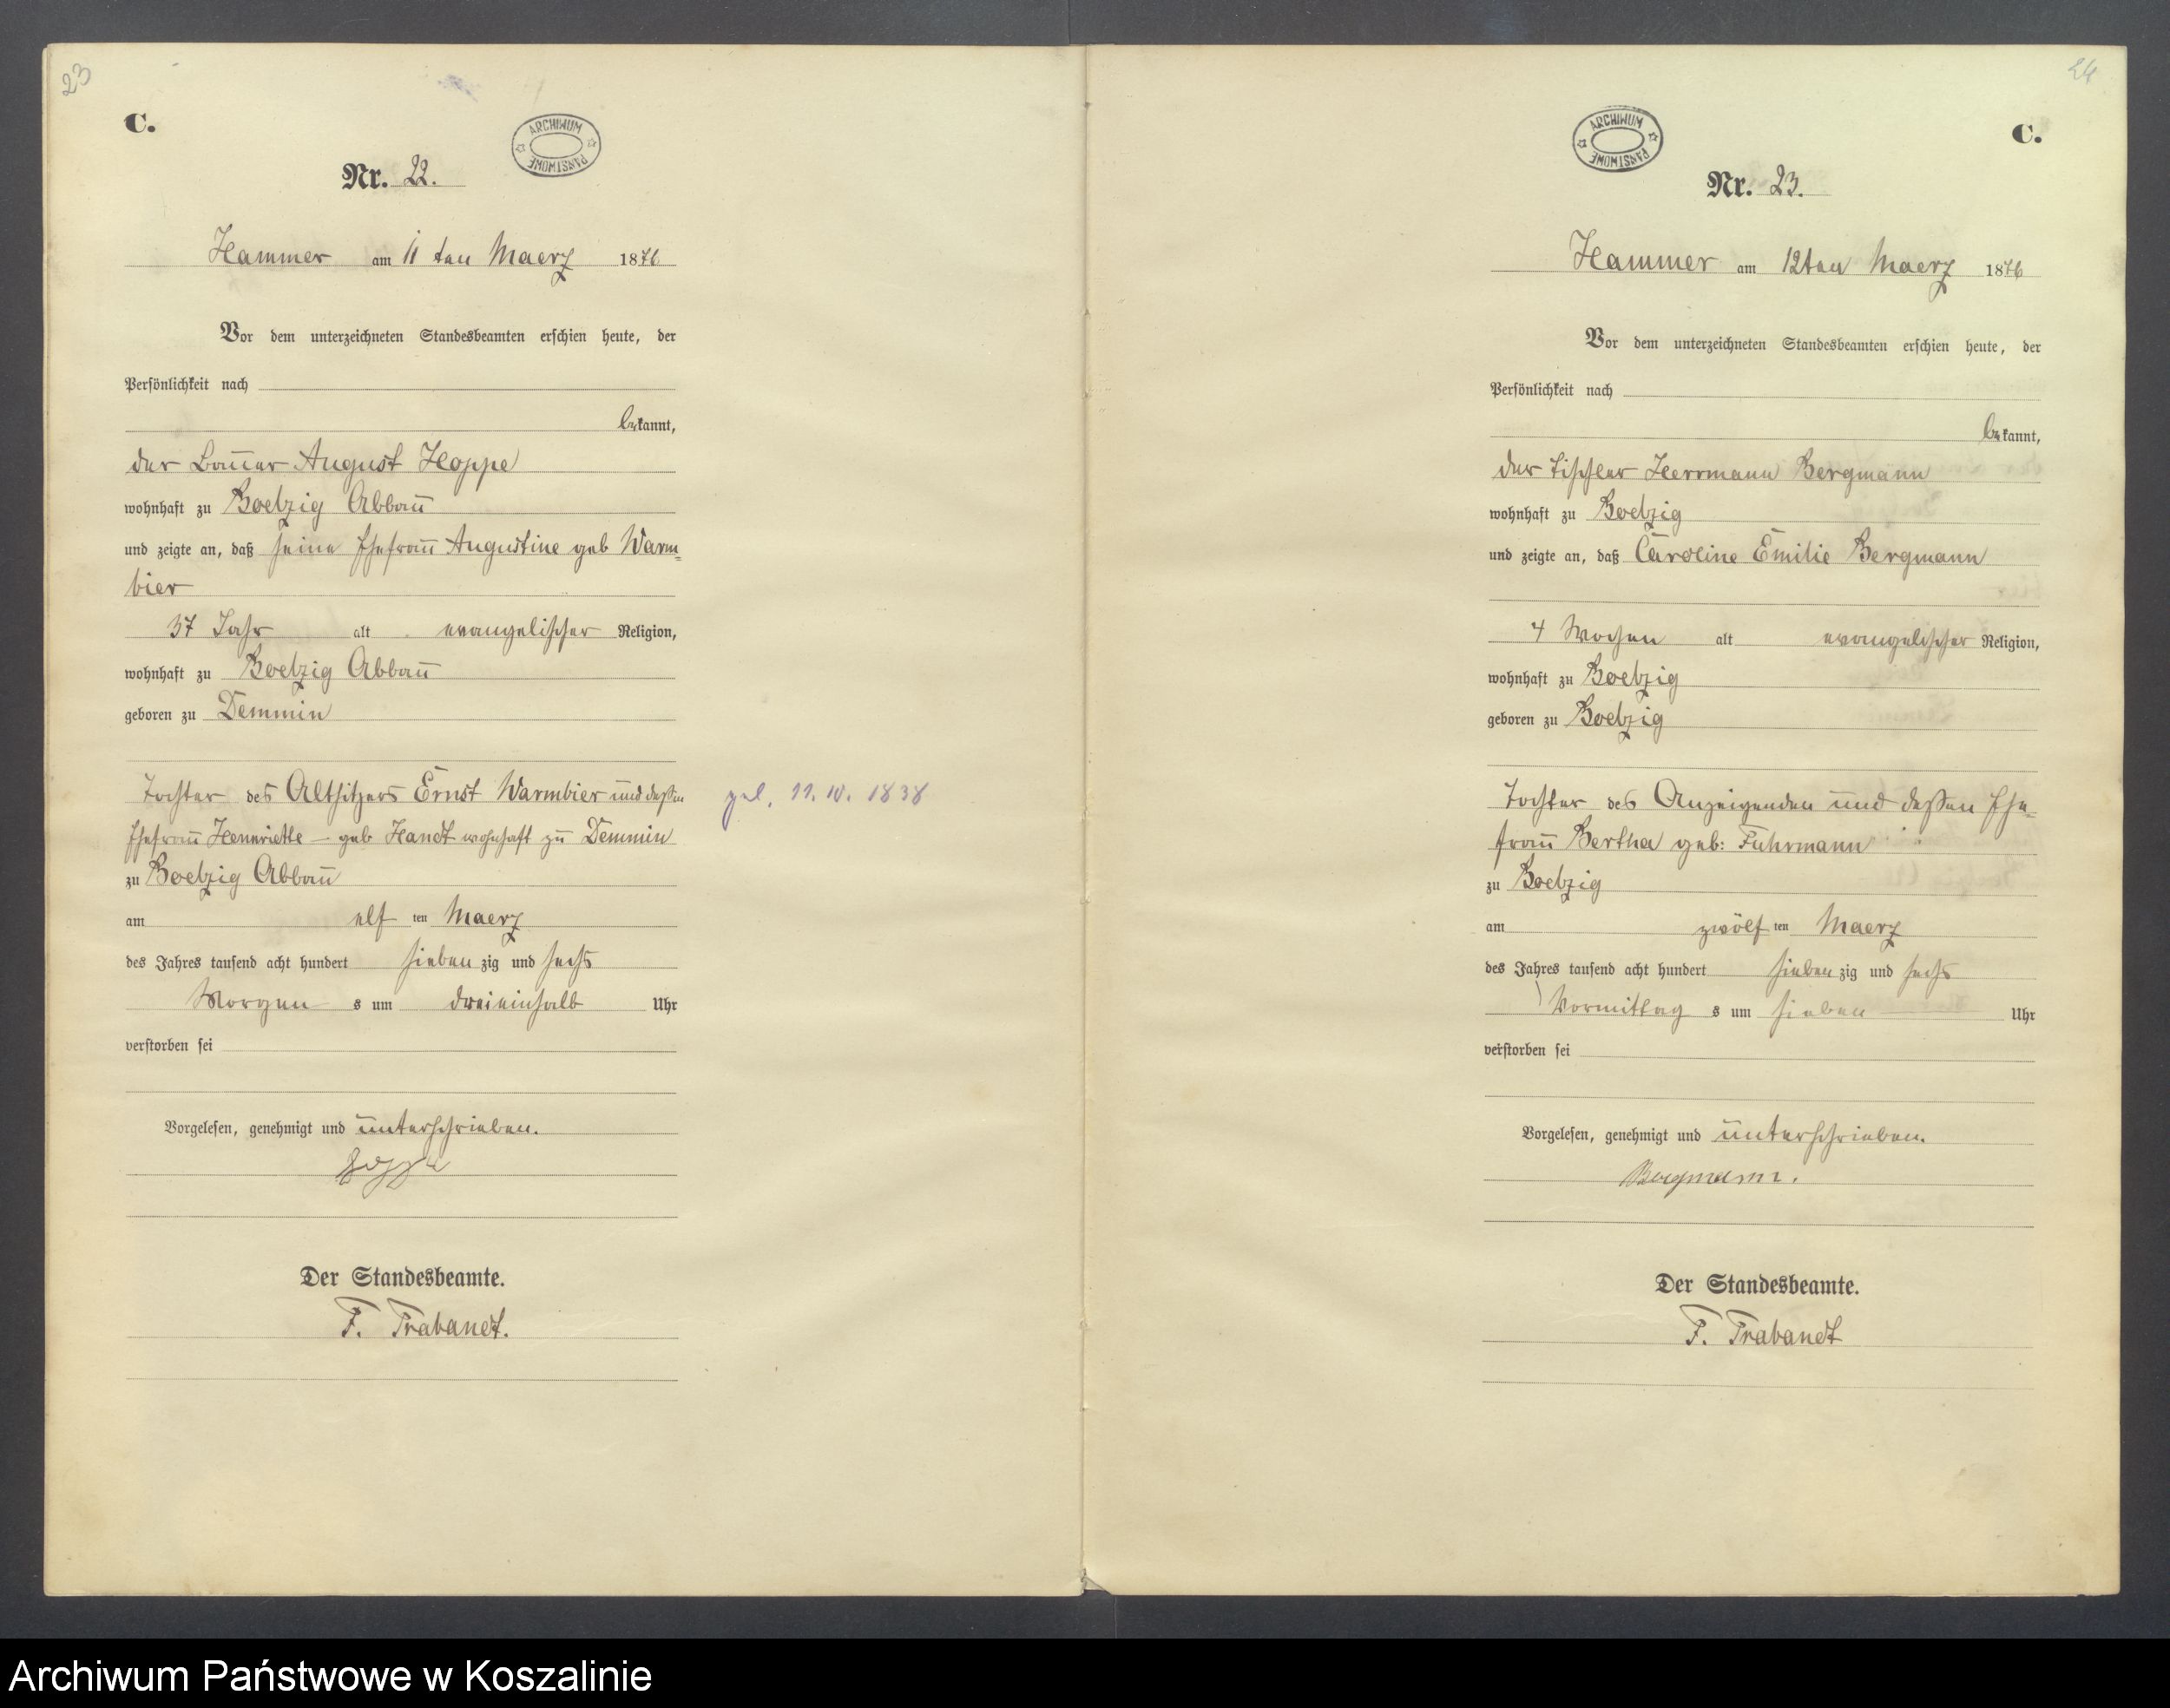 23
C.
ARCHIWUM PAŃSTWOWE
Nr. 22.
Hammer am 11 ten Maerz 1876
Vor dem unterzeichneten Standesbeamten erschien heute, der
Persönlichkeit nach
bekannt,
der Bauer August Hoppe
wohnhaft zu Boetzig Abbau
und zeigte an, daß seine Ehefrau Augustine geb Warm=
bier
37 Jahr alt evangelischer Religion,
wohnhaft zu Boetzig Abbau
geboren zu Demmin
Tochter des Altsitzers Ernst Warmbier und dessen
Ehefrau Henriette – geb Handt wohnhaft zu Demmin
zu Boetzig Abbau
am elf ten Maerz
des Jahres tausend acht hundert sieben zig und sechs
Morgen s um dreieinhalb Uhr
verstorben sei
Vorgelesen, genehmigt und unterschrieben.
Hoppe
Der Standesbeamte.
F. Trabandt.
11. 10. 1838
24
C.
ARCHIWUM PAŃSTWOWE
Nr. 23.
Hammer am 12ten Maerz 1876
Vor dem unterzeichneten Standesbeamten erschien heute, der
Persönlichkeit nach
bekannt,
der Tischler Herrmann Bergmann
wohnhaft zu Boetzig
und zeigte an, daß Caroline Emilie Bergmann
4 Wochen alt evangelischer Religion,
wohnhaft zu Boetzig
geboren zu Boetzig
Tochter des Anzeigenden und dessen Ehe=
frau Bertha geb: Fuhrmann
zu Boetzig
am zwölf ten Maerz
des Jahres tausend acht hundert sieben zig und sechs
Vormittag s um sieben Uhr
verstorben sei
Vorgelesen, genehmigt und unterschrieben.
Bergmann.
Der Standesbeamte.
F. Trabandt
Archiwum Państwowe w Koszalinie